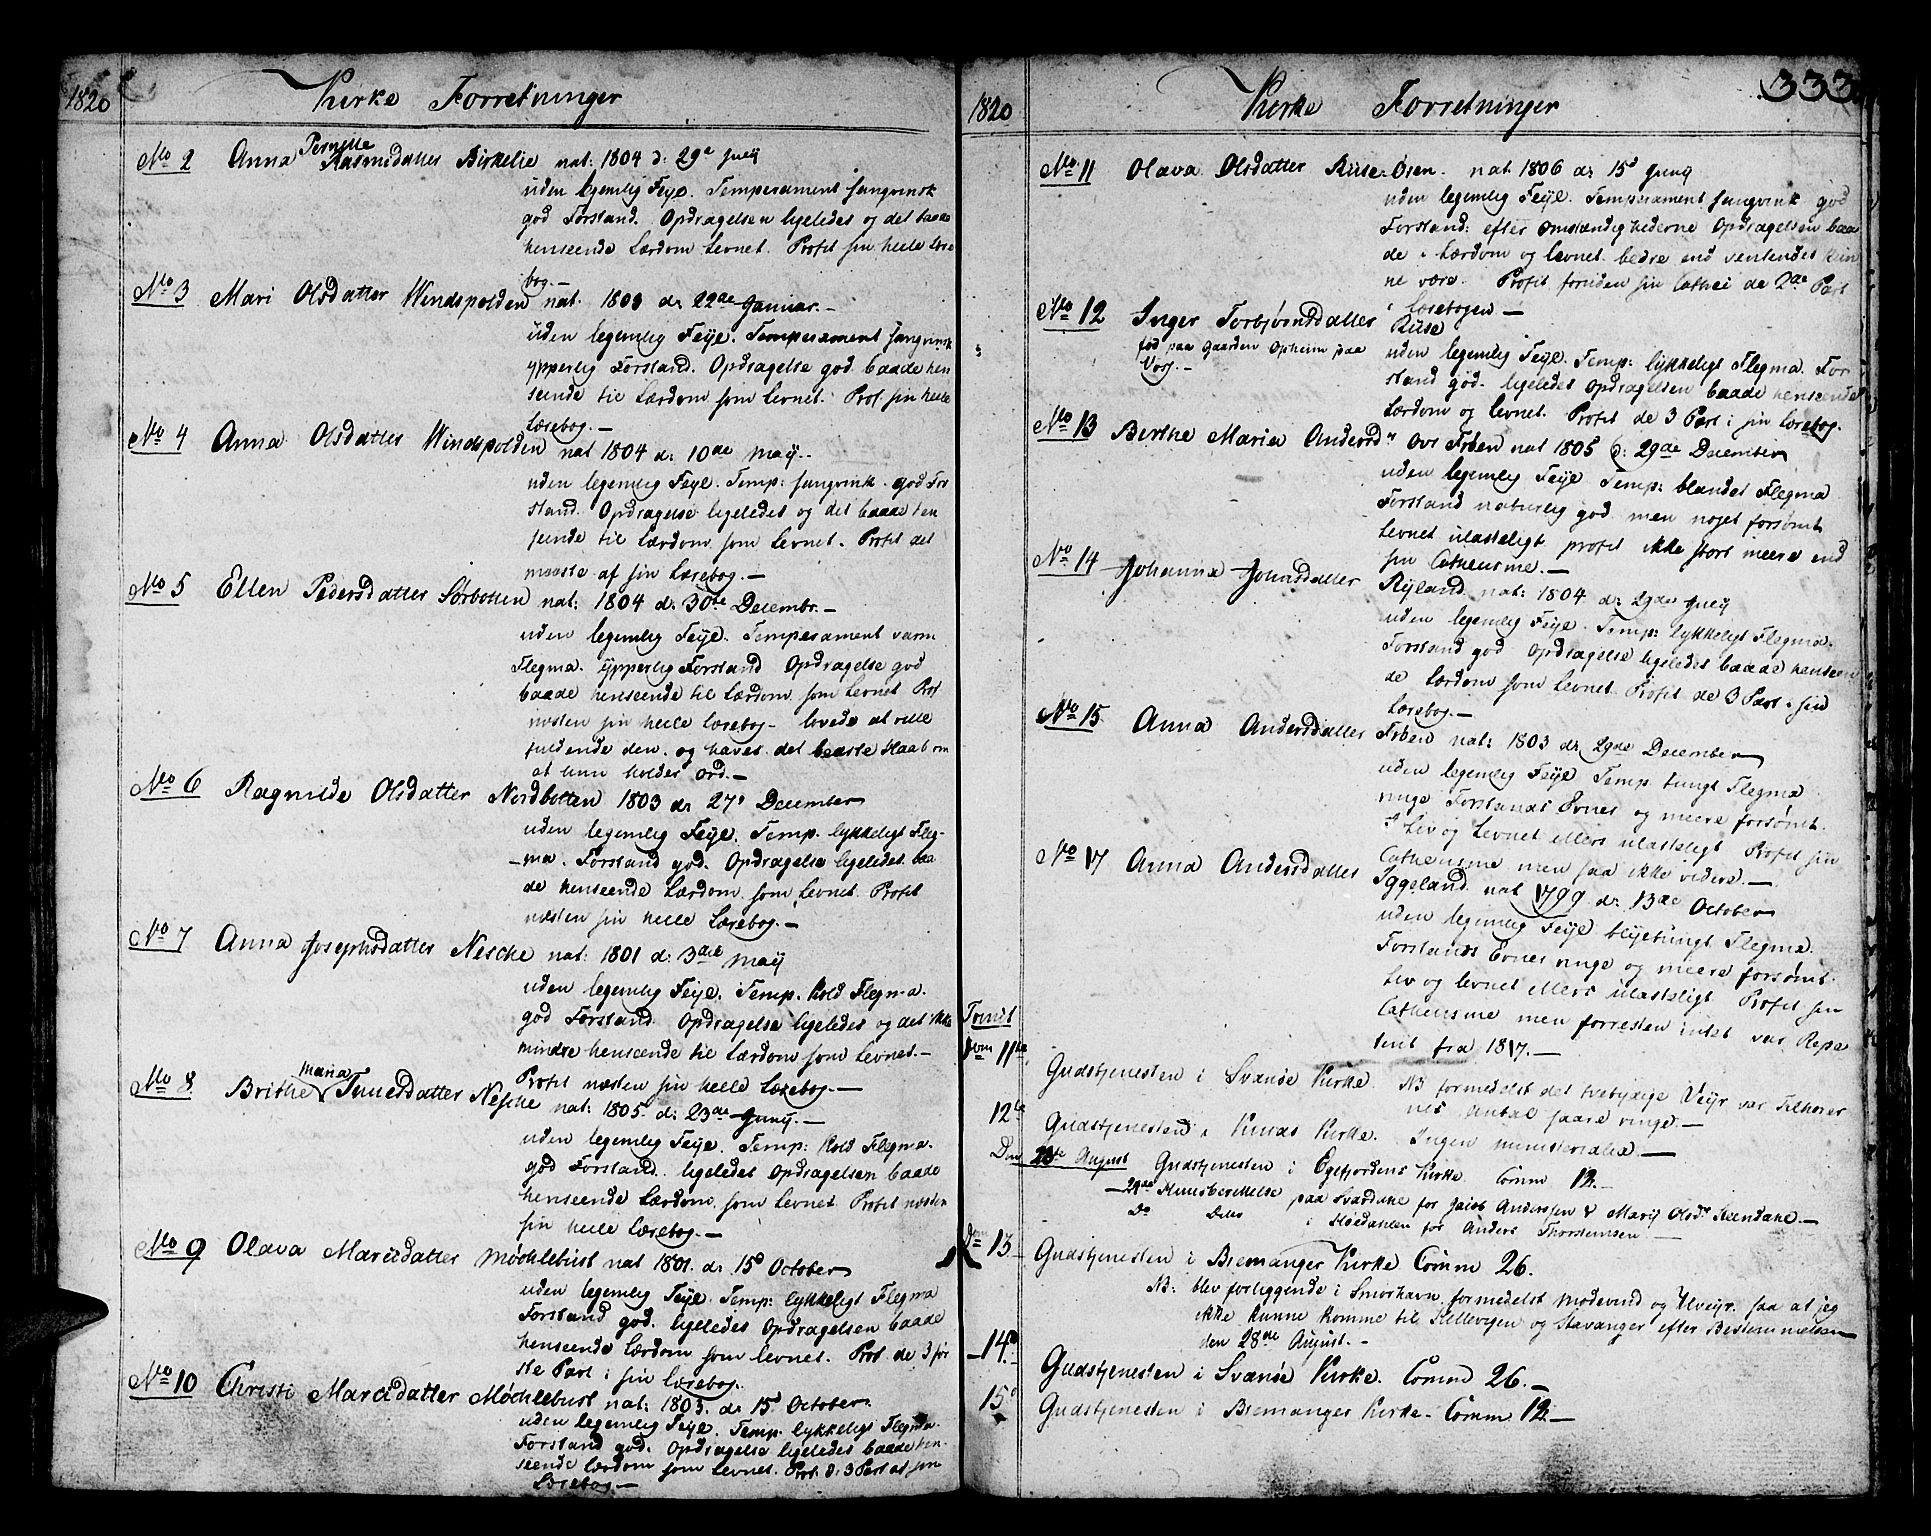 1820 Kirke Forretninger
No 2 Anna Pernille Rasmusdatter Birkelie nat: 1804 d: 29e Juny
uden legemlig Feyl. Temperament sangvinsk
god Forstand. Opdragelsen ligeledes og det baade
henseende Lærdom Levnet. Profit sin heele Lære
bog.—
No 3 Mari Olsdatter Windspolden nat. 1803 d: 22de Januar.—
uden legemlig Feyl. Temperament sangvinsk
ypperlig Forstand. Opdragelse god baade hen
seende til Lærdom som Levnet. Prof sin heele
Lærebog.—
No 4 Anna Olsdatter Windspolden nat 1804 d: 10de May.
uden legemlig Feyl. Temp: sangvinsk. god For
stand. Opdragelse ligeledes og det baade hen
seende til Lærdom som Levnet. Profit det
meeste af sin Lærebog.—
No 5 Ellen Pedersdatter Sørbotten nat: 1804 d: 30te Decembr.—
uden legemlig Feyl. Temperament varm
Flegma. ypperlig Forstand Opdragelse god
baade henseende til Lærdom som Levnet Prof
næsten sin heele Lærebog— lovede at ville
fuldende den. og haves det beste Haab om
at hun holder ord.—
No 6 Ragnilde Olsdatter Nordbotten 1803 d: 27d December
uden legemlig Feyl. Temp. lykkeligt Fleg-
-ma. Forstand god. Opdragelse ligeledes baa
de henseende Lærdom som Levnet Profit
næsten sin heele Lærebog.—
No 7 Anna Josephsdatter Nescke nat: 1801 d: 3die May
uden legemlig Feyl. Temp. kold Flegma.
god Forstand. Opdragelse ligeledes og det ikke
mindre henseende til Lærdom som Levnet.—
Profit næsten sin heele Lærebog.—
No 8 Brithe Maria Tuuesdatter Nescke nat: 1805 d: 23de Juny.—
uden legemlig Feyl. Temp: kold Flegma.
god Forstand. ligeledes Opdragelsen baade
henseende Lærdom som Levnet Profit næsten
sin heele Lærebog.—
No 9 Olava Marcusdatter Møchlebust nat 1801. d: 15d October
uden legemlig Feyl. Temp: lykkeligt Flegma
Forstand god. ligeledes Opdragelsen baade
henseende Lærdom som Levnet. Prof. de 3 før
ste Part i sin Lærebog.
No 10 Christi Marcusdatter Møchlebust nat: 1803. d: 15d October.
uden legemlig Feyl. Temp: lykkeligt Flegma.
Forstand god. Opdragelse ligeledes baade hen-
seende Lærdom som Levnet. Prof. d: 3 Part af sin
Lærebog—
1820 Kirke Forretninger 333
No 11 Olava Olsdatter Riise-Øren. nat 1806 d: 15d Juny
uden legemlig Feyl. Temperament sangvinsk god
Forstand: efter omstændighederne Opdragelsen baa
de i Lærdom og Levnet bedre end ventendes kun
ne være. Profit foruden sin Cathei de 2de Part
i Lærebogen—
No 12 Inger Torbjørnsdatter Riise
fød paa Gaarden Opheim paa
Vos.—
uden legemlig Feyl. Temp: lykkeligt Flegma. For
stand god. ligeledes Opdragelsen baade henseende
Lærdom og Levnet. Profit de 3 Part i sin Lærebog.
No 13 Berthe Maria Andersdr Ovr Frøen nat 1805 d: 29de December
uden legemlig Feyl Temp: blandet Flegma
Forstand naturlig god. men noget forsømt
Levnet ulasteligt profit ikke stort meere end
sin Cathecisme.—
No 14 Johanna Johnsdatter Ryland nat: 1804 d: 29de July
uden legemlig Feyl. Temp: lykkeligt Flegma.
Forstand god Opdragelse ligeledes baade henseen
de Lærdom som Levnet. Profit de 3 Part i sin
Lærebog.—
No 15 Anna Andersdatter Frøen nat: 1803 d: 29de December
uden legemlig Feyl Temp tungt Flegma
ringe Forstands Evner og meere forsømt.
I Liv og Levnet ellers ulasteligt Profit sin
Cathecisme men saa ikke videre.—
No 17 Anna Andersdatter Iggeland nat 1799 d: 13de October
uden legemlig Feyl blyetungt Flegma.
Forstands Evner ringe og meere forsømt.
Liv og Levnet ellers ulasteligt Profit sin
Cathecisme men forresten intet var Repe
tent fra 1817.—
Trinit
Dom 11te Gudstjenesten i Svanøe Kirke. NB formedelst det tvetydige Veyr var Tilhører
nes Antal saare ringe.—
12te Gudstjenesten i Kinds Kirke. Ingen ministerialia.—
Den 23te August Gudstjenesten i Egefjordens Kirke Comm 12.—
—29de Huusberettelse paa Svardene for Jacob Anderssen & Mary Olsdr Steendahl—
Do Ditto i Høidahlen for Anders Thorsteinsen—
Dom 13 Gudstjenesten i Bremanger Kirke Comm 26.
NB: blev forliggende i Smørhavn formedelst Modevind og Uveyr. saa at jeg
ikke kunne komme til Kellevogen og Stavanger efter Bestemmelsen
den 28de August.—
—14d Gudstjenesten i Svanøe Kirke. Comm 26.—
15d Gudstjenesten i Bremanger Kirke. Comm 12.—